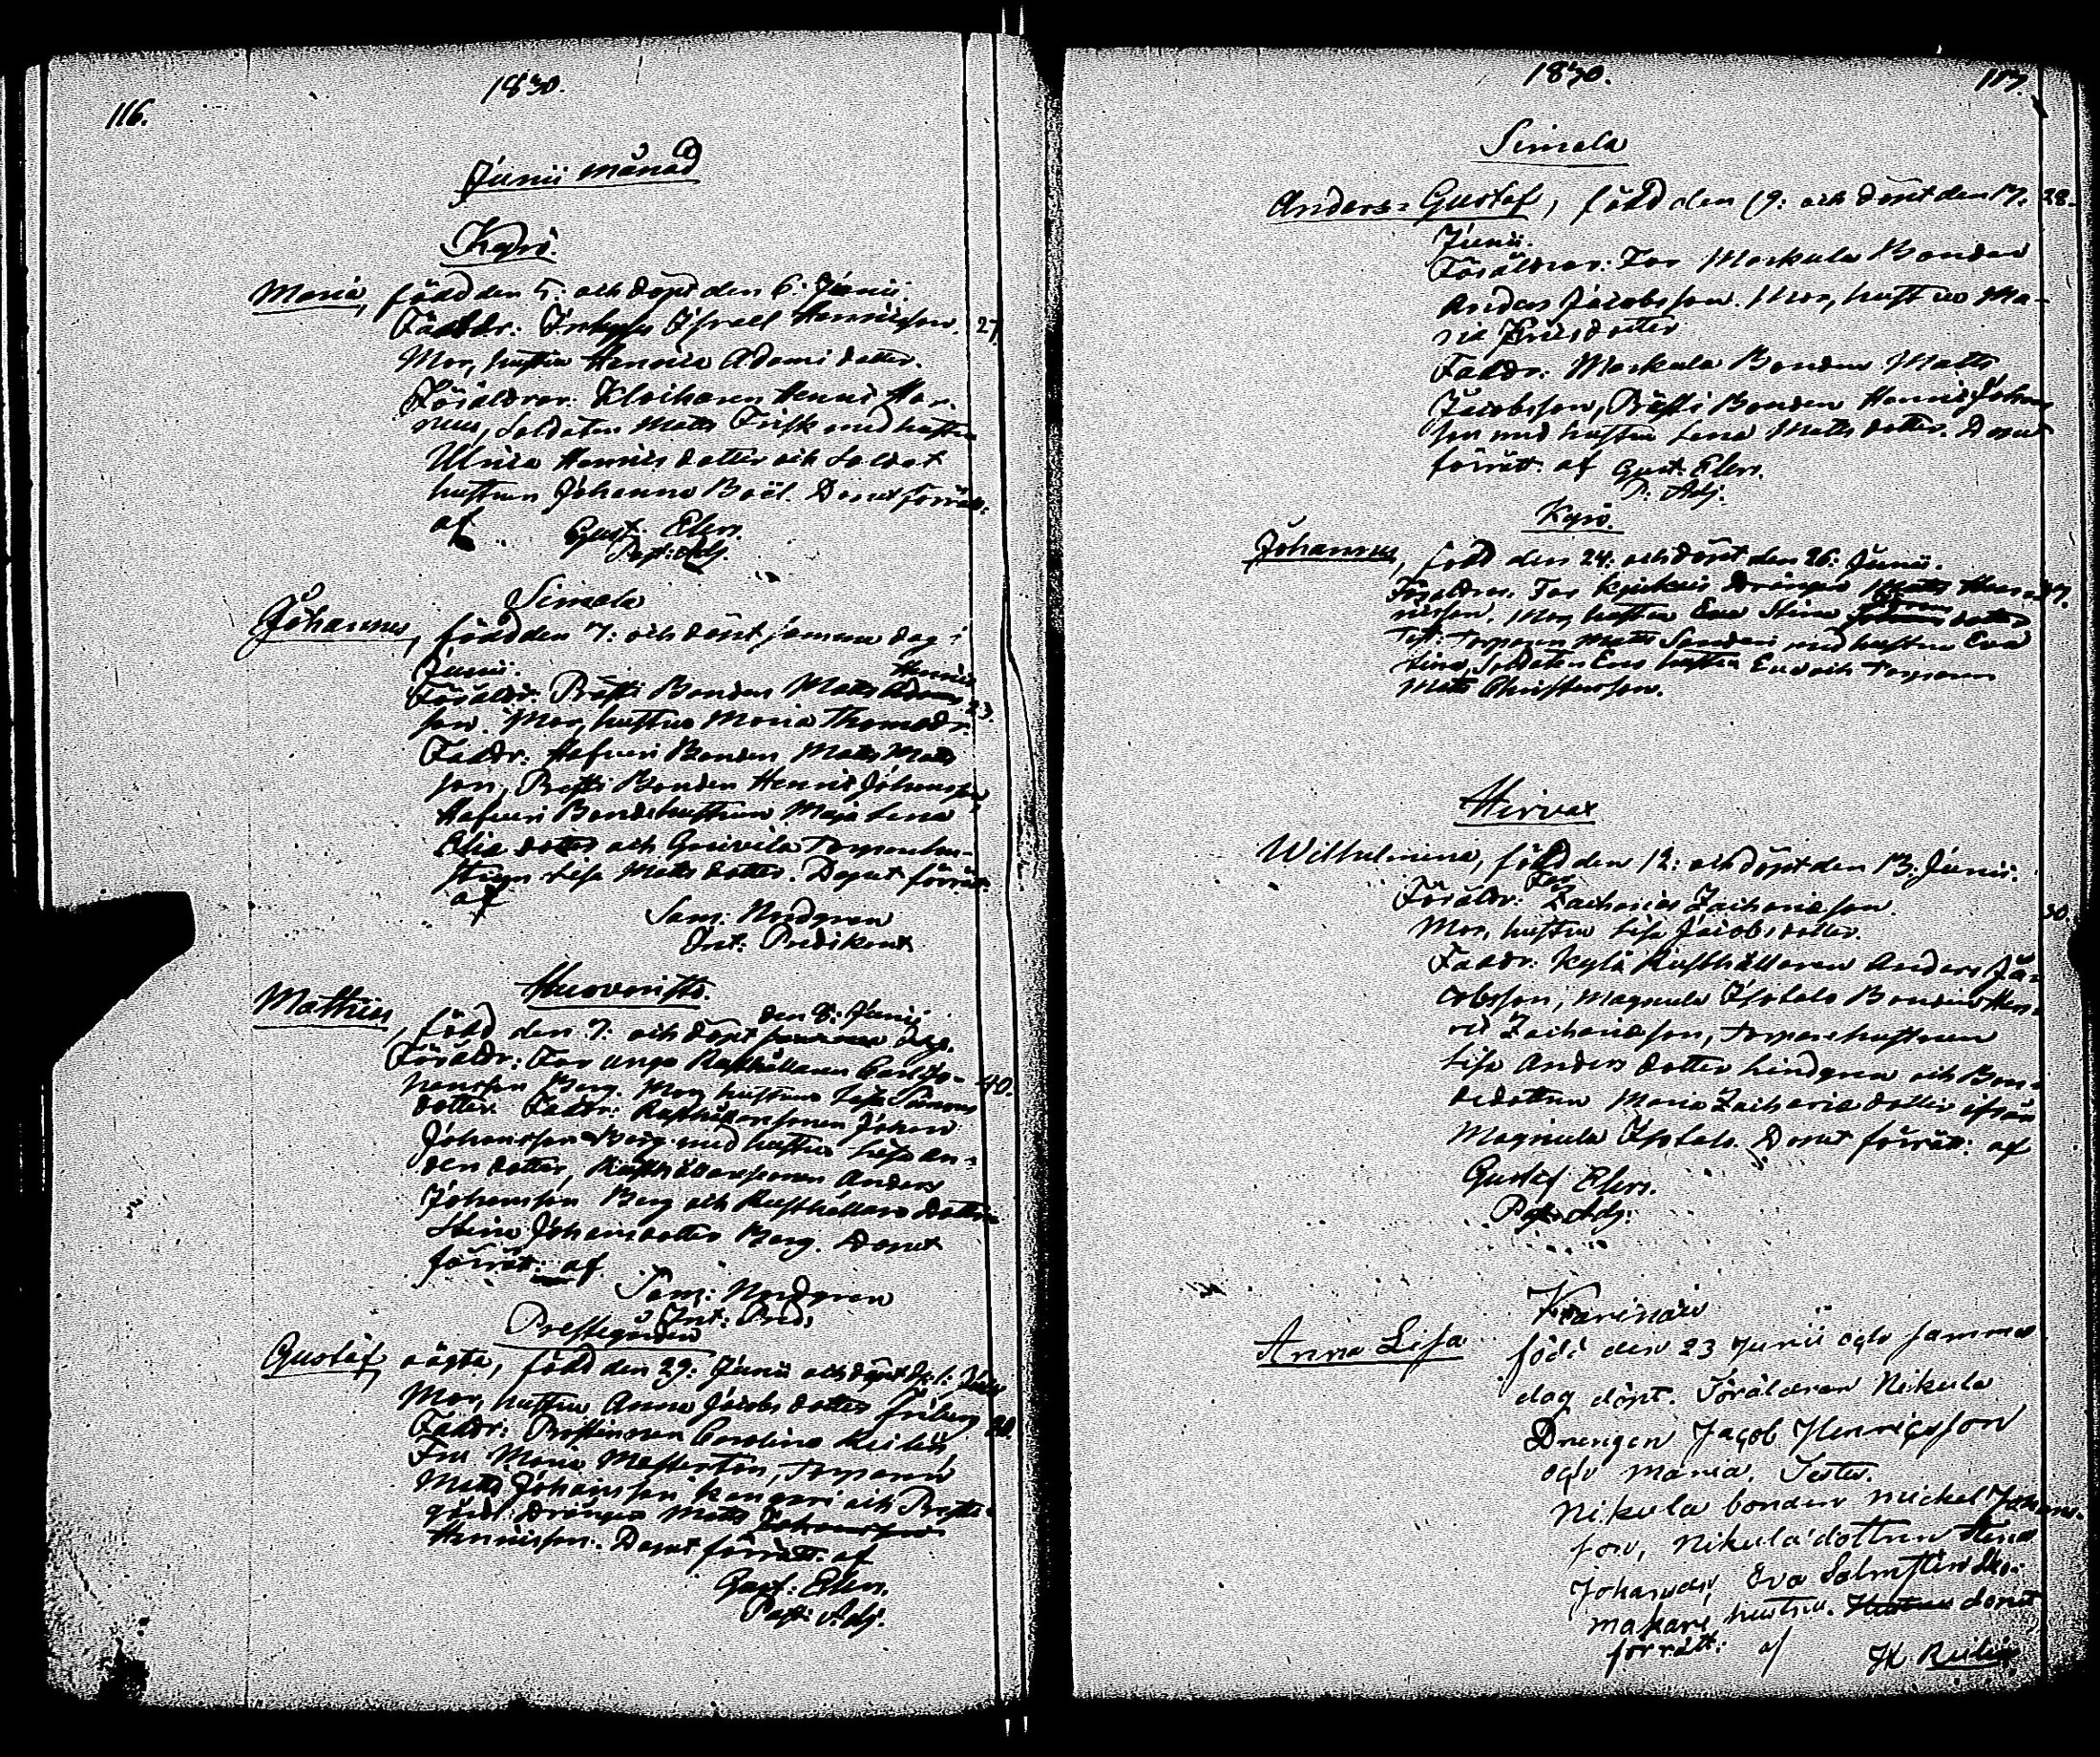 116.
1830.
Junii månad
Kyrö.
Maria, född den 5. och döpt den 6. Junii.
Faddr: Israel Henricsson. 27.
Mor, hustru Henrica Adamsdotter.
Föräldrar: Henric
Soldaten Matts Frisk med hustru
Ulrica Henricsdotter och Soldat
hustrun Johanna Boël. Dopet förrätt:
af Gust: Elers.
Past: Adj
Simala
Johannes, född den 7: och döpt samma dag i
Junii.
Henrics
Föräldr: Prästi Bonden Matts
son. Mor, hustru Maria Thomaedr. 23.
Faddr: Bonden Matts Matts
son, Prästi Bonden Henric Johansson
Bondehustrun Maja Lena
dotter och Torpare hu-
strun Lisa Matts dotter. Dopet förrätt:
af
Sam: Nordgren
Ord: Predikant
Huovoristo.
den 8: Junii
Mathias, född den 7: och döpt samma dag.
Föräldr: Far unge Rusthållaren Carl Jo- 40.
hansson Berg. Mor, hustrun Lisa Simons
dotter. Faddr: Rusthållaresonen Johan
Johansson Berg med hustru Lisa An-
ders dotter, Rusthållaresonen Anders
Johansson Berg och Rusthållare dottren
Stina Johansdotter Berg. Dopet
förrät: af
Sam: Nordgren
Ord: Pred.
Prestegården
Gustaf, oägta, född den 29: Junii och döpt d. 1: Julii
Mor, hustru Anna Jacobs dotter Friberg
Faddr: Prostinnan Carolina Reilin,
Fru Maria Mesterton, Torparen
Matts Johansson Kangari och Preste-
gårds Drängen Matts Johansson
Henricsson. Dopet förrätt: af
Gust: Elers.
Past: Adj.
1830. 117.
Simala
Anders Gustaf, född den 19: och döpt den 17. 28.
Junii.
Föräldrar: Far Markula Bonden
Anders Jacobsson. Mor, hustru Ma-
ria Ericsdotter
Faddr: Markula Bonden Matts
Jacobsson, Prästi Bonden Henric Johans
son med hustru Lena Matts dotter. Dopet
förrätt: af Gust: Elers.
P: Adj.
Kyrö.
Johannes, född den 24: och döpt den 26: Junii.
Föräldrar. Far Drängen Matts Hen-
ricsson. Mor, hustru Eva Stina dotter
Test: Torparen Matts med hustru Eva
Lina, Soldaten Ens hustru Eva och Torparen
Matts Christersson.
Hirvax
Wilhelmina, född den 12: och döpt den 13: Junii.
Far
Föräldr: Zacharias Zachariæson. 30.
Mor, hustru Lisa Jacobsdotter.
Faddr: Kylä Rusthållaren Anders Ja-
cobsson, Magnula Isotalo Bonden Hen-
ric Zachariæson, Torparehustrun
Lisa Anders dotter Lindgren och Bon-
dedottren Maria Zachariæ dotter ifrån
Magnula Isotalo. Dopet förrät: af
Gustaf Elers.
Past: Adj:
Karinais
Anna Lisa född den 23 Junii och samma
dag döpt. Föräldrar Nikula
Drengen Jacob Henricsson
och Maria. Testes.
Nikula bonden Mickel Johans-
son, Nikula dottren Stina
Johansdr, Eva Salmsten Sko-
makare hustru. Hustrun dopet
förrätt: af H Reilin